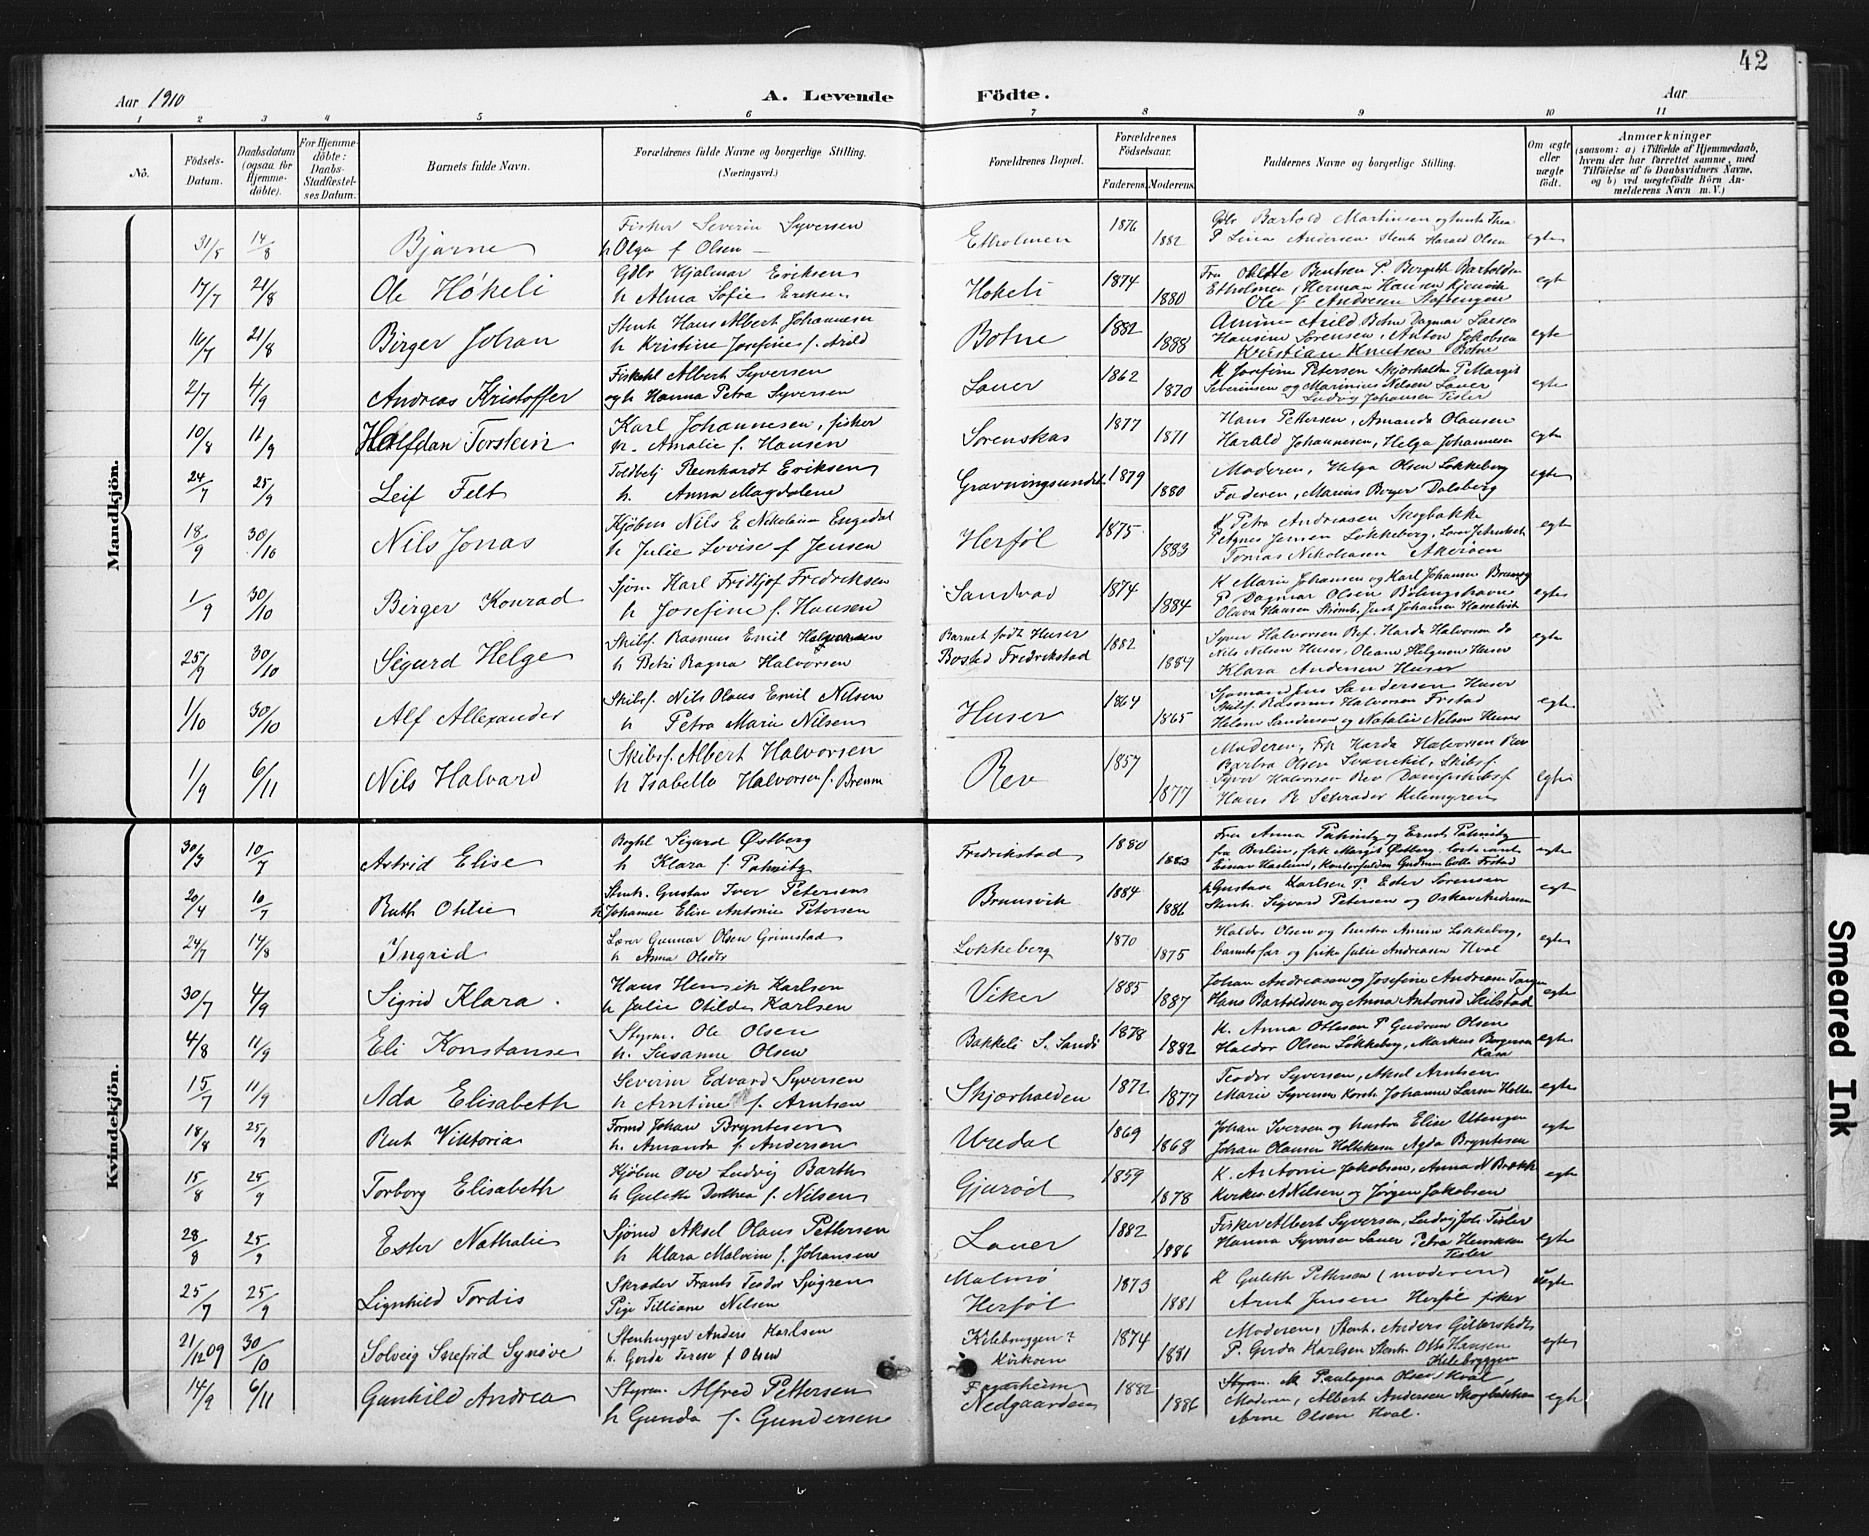 42
Aar 1910
A. Levende Födte.
Aar
1 2 3 4 5 6 7 8 9 10 11
No.
Födsels-Datum.
Daabsdatum (ogsaa for Hjemme-döbte).
For Hjemme-döbte: Daabs-Stadfæstel-ses Datum.
Barnets fulde Navn.
Forældrenes fulde Navne og borgerlige Stilling. (Næringsvei.)
Forældrenes Bopæl.
Forældrenes Födselsaar.
Faderens. Moderens.
Faddernes Navne og borgerlige Stilling.
Om ægte eller uægte födt.
Anmærkninger
(saasom: a) i Tilfælde af Hjemmedaab, hvem der har forrettet samme, med Tilföielse af to Daabsvidners Navne, og b) ved uægtefödte Börn An-melderens Navn m. V.)
Mandkjön.
31/5 14/8 Bjarne
Fisker Severin Syversen
h Olga f Olsen
Etholmen 1876 1882
Gdbr Bartold Martinsen og hustr Thea
P Lina Andersen Stenh Harald Olsen
egte
17/7 21/8 Ole Høkeli
Gdbr Hjalmar Eriksen
h Alma Sofie Eriksen
Høkeli 1874 1880
Bentsen P. Bergith Bartoldsen
Etholmen, Herman Hansen
Ole J Andresen
egte
16/7 21/8 Birger Johan
Stenh Hans Albert Johannesen
h Kristine Josefine f. Arild
Botne 1882 1888
Arild Botne Dagmar Larsen
Hansine Sørensen, Anton Jakobsen
Kristian Knutsen Botne
egte
2/7 4/9 Andreas Kristoffer
Albert Syversen
og h Hanna Petra Syversen
Lauer 1862 1870
K Josefine Petersen Skjærhalden P Margit
Severinsen og Marinius Nelsen Lauer
Ludvig Johansen Tisler
egte
10/8 11/9 Halfdan Torstein
Karl Johannesen, fisker
h. Amalie f. Hansen
Sørenskas 1877 1871
Hans Pettersen, Amanda Olausen
Harald Johannesen, Helga Johannesen
egte
24/7 25/9 Leif Felt
Toldbetj Reinhardt Eriksen
h. Anna Magdalene
Gravningsundet 1879 1880
Moderen, Helga Olsen Løkkeberg
Faderen, Marius Beyer Dalsberg
egte
18/9 30/10 Nils Jonas
Kjøbm Nils E Nikolaisen Engedal
h Julie Lovise f Jensen
Herføl 1875 1883
K Petra Andreasen Skogbakke
P Agnes Jensen Løkkeberg,
Tomas Nikolaisen Akerøen
egte
1/9 30/10 Birger Konrad
Sjøm Karl Fridtjof Fredriksen
h Josefine f. Hansen
Sandvad 1874 1884
K Marie Johansen og Karl Johansen
P Dagmar Olsen Bølingshavn
Olava Hansen Strømb, Just Johansen
egte
25/9 30/10 Sigurd Helge
Skibsf. Rasmus Emil Halvorsen
h Betzi Ragna Halvorsen
Barnet født Huser
Bosted Fredrikstad 1882 1884
Syver Halvorsen Rev. Harda Halvorsen do
Nils Nelsen Huser, Oleane Helgesen Huser
Klara Andersen Huser
egte
1/10 30/10 Alf Allexander
Skibsf. Nils Olaus Emil Nilsen
h Petra Marie Nilsen
Huser 1864 1865
Sjømand Jens Sandersen Huser
Skibsf. Rasmus Halvorsen Frstad
Helene Sandersen og Natalie Nelsen Huser
egte
1/9 6/11 Nils Halvard
Skibsf. Albert Halvorsen
h Isabella Halvorsen f. Bremn
Rev 1857 1877
Moderen, Frk Harda Halvorsen Rev
Barbra Olsen Svanekil, Skibsf.
Syver Halvorsen Rev Dampskibsf
Hans R Schrader Helsingren
egte
Kvindekjön.
30/3 10/7 Astrid Elise
Boghl Sigurd Østberg
h Klara f. Patnitz
Fredrikstad 1880 1883
Fru Anna Patnitz og Ernst Patnitz
fra Berlin, frk Margit Østberg
Einar Haslund, Gudrun Frstad
egte
20/4 10/7 Ruth Otilie
Stenh. Gustav Iver Petersen
h Johanne Elise Antonie Petersen
Brunsvik 1884 1886
h Gustava Karlsen P. Ester Sørensen
Stenh Sigvard Petersen og Oskar Andersen
egte
24/7 14/8 Ingrid
Lærer Gunnar Olsen Grimstad
h Anna Olsdtr
Løkkeberg 1870 1875
Haldor Olsen og hustru Løkkeberg,
barnets far og frk Julie Andreasen Hval
egte
30/7 4/9 Sigrid Klara
Hans Henrik Karlsen
h Julie Otilde Karlsen
Viker 1885 1887
Johan Andreasen og Josefine Andreasen
Hans Bartoldsen og Anna Antonsd Skilstad
egte
4/8 11/9 Eli Konstanse
Styrm. Ole Olsen
h. Susanne Olsen
Bakkeli S. Sandø 1878 1882
K. Anna Ottesen P Gudrun Olsen
Haldor Olsen Løkkeberg, Markus Borgersen
Kåsa
egte
15/7 11/9 Ada Elisabeth
Severin Edvard Syversen
h Arntine f. Arntsen
Skjærhalden 1872 1877
Teodor Syversen, Aksel Arntsen
Marie Syversen Johanne Larsen Holte
egte
18/8 25/9 Rut Viktoria
Johan Bryntesen
h. Amanda f. Andersen
Urdal 1869 1868
Johan Iversen og hustru Elise Utengen
Johan Olausen Holtekasa Agda Bryntesen
egte
15/8 25/9 Torborg Elisabeth
Kjøbm Ove Ludvig Barth
h Guletta Dorthea f. Nilsen
Gjurød 1859 1878
K. Antonie Jakobsen, Anna N Brekke
Kirker A Nilsen og Jørgen Jakobsen
egte
28/8 25/9 Ester Nathalie
Sjømd Aksel Olaus Pettersen
h Klara Malvine f. Johansen
Lauer 1882 1886
Fisker Albert Syversen, Ludvig Joh. Tisler
Hanna Syversen Lauer Petra Henriksen
Tisler
egte
25/7 25/9 Lignhild Tordis
Skræder Frants Teodor Sjøgren
Pige Tilliane Nelsen
Malmø
Herføl 1873 1881
K Guleth Pettersen (moderen)
Arnt Jensen Herføl fisker
uegte
21/12 09 30/10 Solveig Snefrid Synøve
Stenhugger Anders Karlsen
h. Gerda Terese f Olsen
Kilebryggen?
Kirkøen 1874 1881
Moderen, Stenh. Anders Gilberstedt
P. Gerda Karlsen Stenh Otto Hansen
Kilebryggen
egte
14/9 6/11 Gunhild Andrea
Styrm. Alfred Pettersen
h Gunda f. Gundersen
Fagerheim
Nedgaarden 1882 1886
Styrm. M Paulogna Olsen Hval,
Moderen, Albert Andersen Skogbakken
Arne Olsen Hval.
egte
Smeared Ink